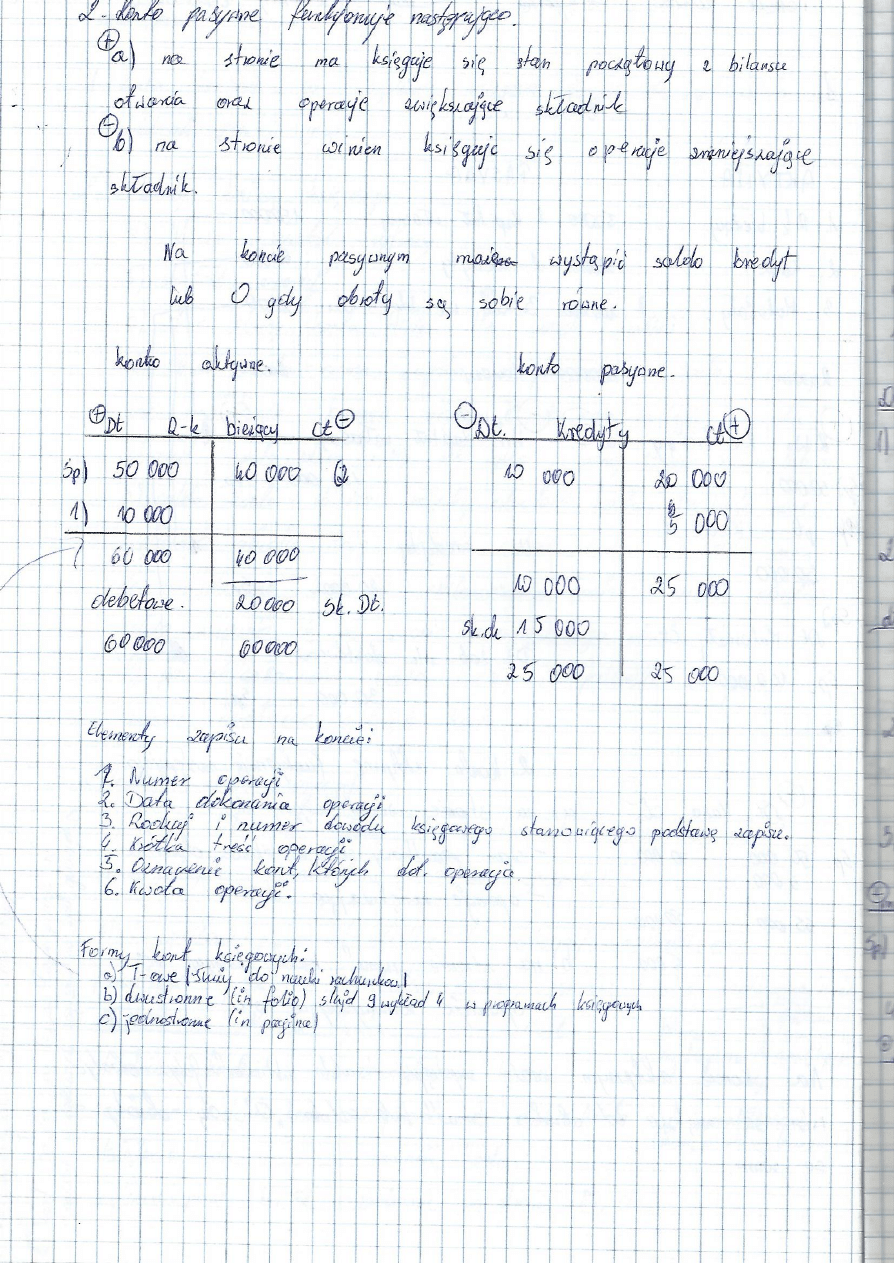 2. Konto pasywne funkcjonuje następująco.
+ a) na stronie ma księguje się stan początkowy z bilansu
otwarcia oraz operacje zwiększające składnik
- b) na stronie winien księguje się operacje zmniejszające
składnik.
Na koncie pasywnym może wystąpić saldo kredyt
lub 0 gdy obroty są sobie równe.
konto aktywne.
konto pasywne.
+ Dt R-k bieżący Ct -
Sp) 50 000 40 000 (2
1) 10 000
60 000 40 000
debetowe. 20 000 Sk. Dt.
60 000 60 000
- Dt. Kredyty Ct +
10 000 20 000
5 000
10 000 25 000
15 000
25 000 25 000
Elementy zapisu na koncie:
1. Numer operacji
2. Data dokonania operacji
3. Rodzaj i numer dowodu księgowego stanowiącego podstawę zapisu.
4. Krótka treść operacji
5. Oznaczenie kont, których dot. operacja
6. Kwota operacji.
Formy kont księgowych:
a) T-owe (służy do nauki rachunkow)
b) dwustronne (in folio) slajd 9 wykład 4 w programach księgowych
c) jednostronne (in pagina)